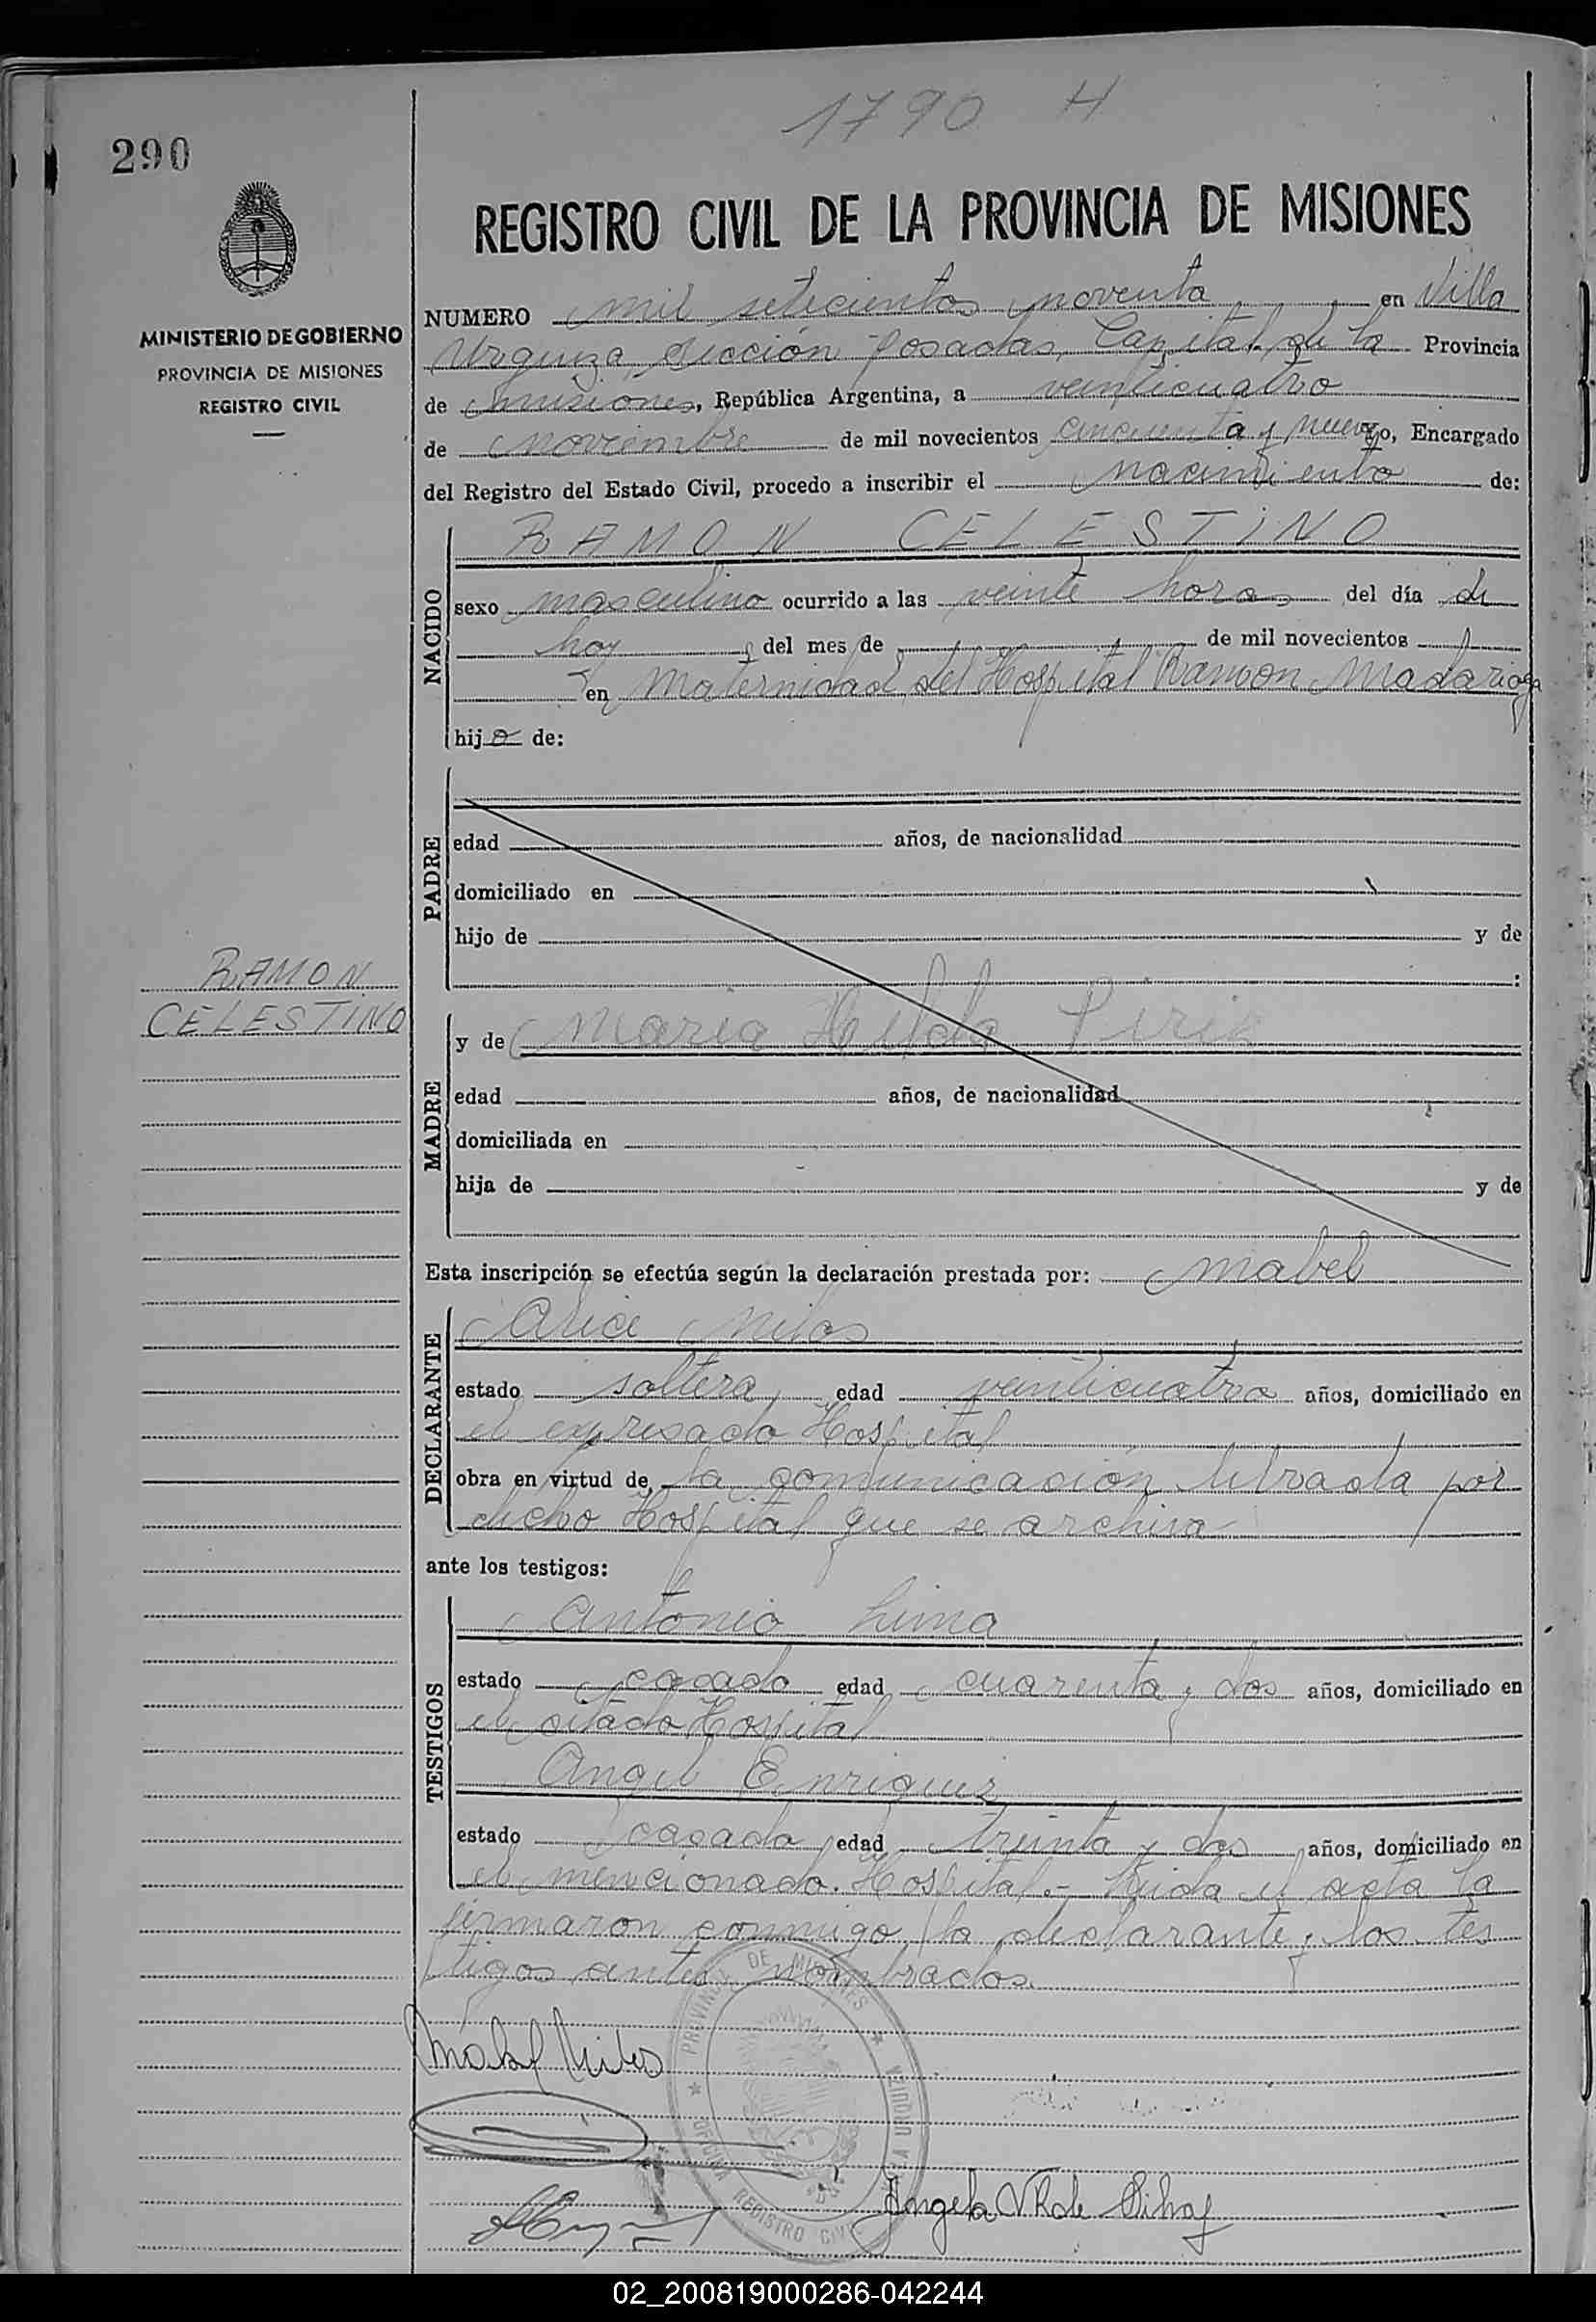 1790 H
290
REGISTRO CIVIL DE LA PROVINCIA DE MISIONES
MINISTERIO DE GOBIERNO
PROVINCIA DE MISIONES
REGISTRO CIVIL
NUMERO mil setecientos noventa en Villa
Urquiza, Sección Posadas, Capital de la Provincia
de Misiones, República Argentina, a veinticuatro
de noviembre de mil novecientos cincuenta y nueve yo, Encargado
del Registro del Estado Civil, procedo a inscribir el nacimiento de:
NACIDO
RAMON CELESTINO
sexo masculino ocurrido a las veinte horas del día de
hoy del mes de de mil novecientos
en Maternidad del Hospital Ramon Madariaga
hijo de:
PADRE
edad años, de nacionalidad
domiciliado en
hijo de y de
:
RAMON
CELESTINO
MADRE
y de Maria Hilda Piriz
edad años, de nacionalidad
domiciliada en
hija de y de
Esta inscripción se efectúa según la declaración prestada por: Mabel
DECLARANTE
Alice Miños
estado soltera edad veinticuatro años, domiciliado en
el expresado Hospital
obra en virtud de la comunicación librada por
dicho Hospital que se archiva
ante los testigos:
TESTIGOS
Antonio Lima
estado casado edad cuarenta y dos años, domiciliado en
el citado Hospital
Angel Enriquez
estado casado edad treinta y dos años, domiciliado en
el mencionado Hospital.- Leida el acta la
firmaron conmigo, la declarante y los tes
tigos antes nombrados.
PROVINCIA DE MISIONES
OFICINA REGISTRO CIVIL
Angela
02_200819000286-042244